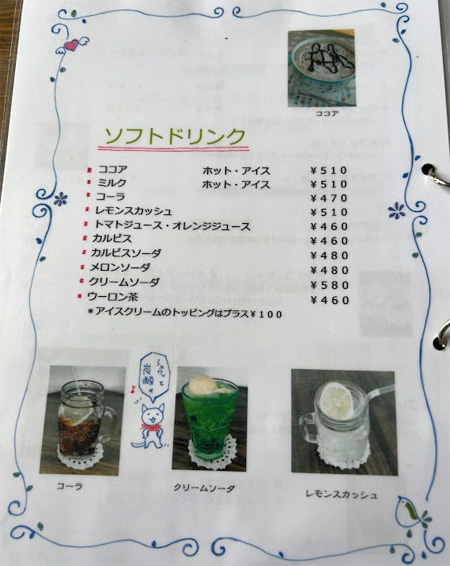 ココア
ソフトドリンク
ココア ホット・アイス ¥510
ミルク ホット・アイス ¥510
コーラ ¥470
レモンスカッシュ ¥510
トマトジュース・オレンジジュース ¥460
カルピス ¥460
カルピスソーダ ¥480
メロンソーダ ¥480
クリームソーダ ¥580
ウーロン茶 ¥460
*アイスクリームのトッピングはプラス¥100
シュワッと
炭酸
コーラ
クリームソーダ
レモンスカッシュ